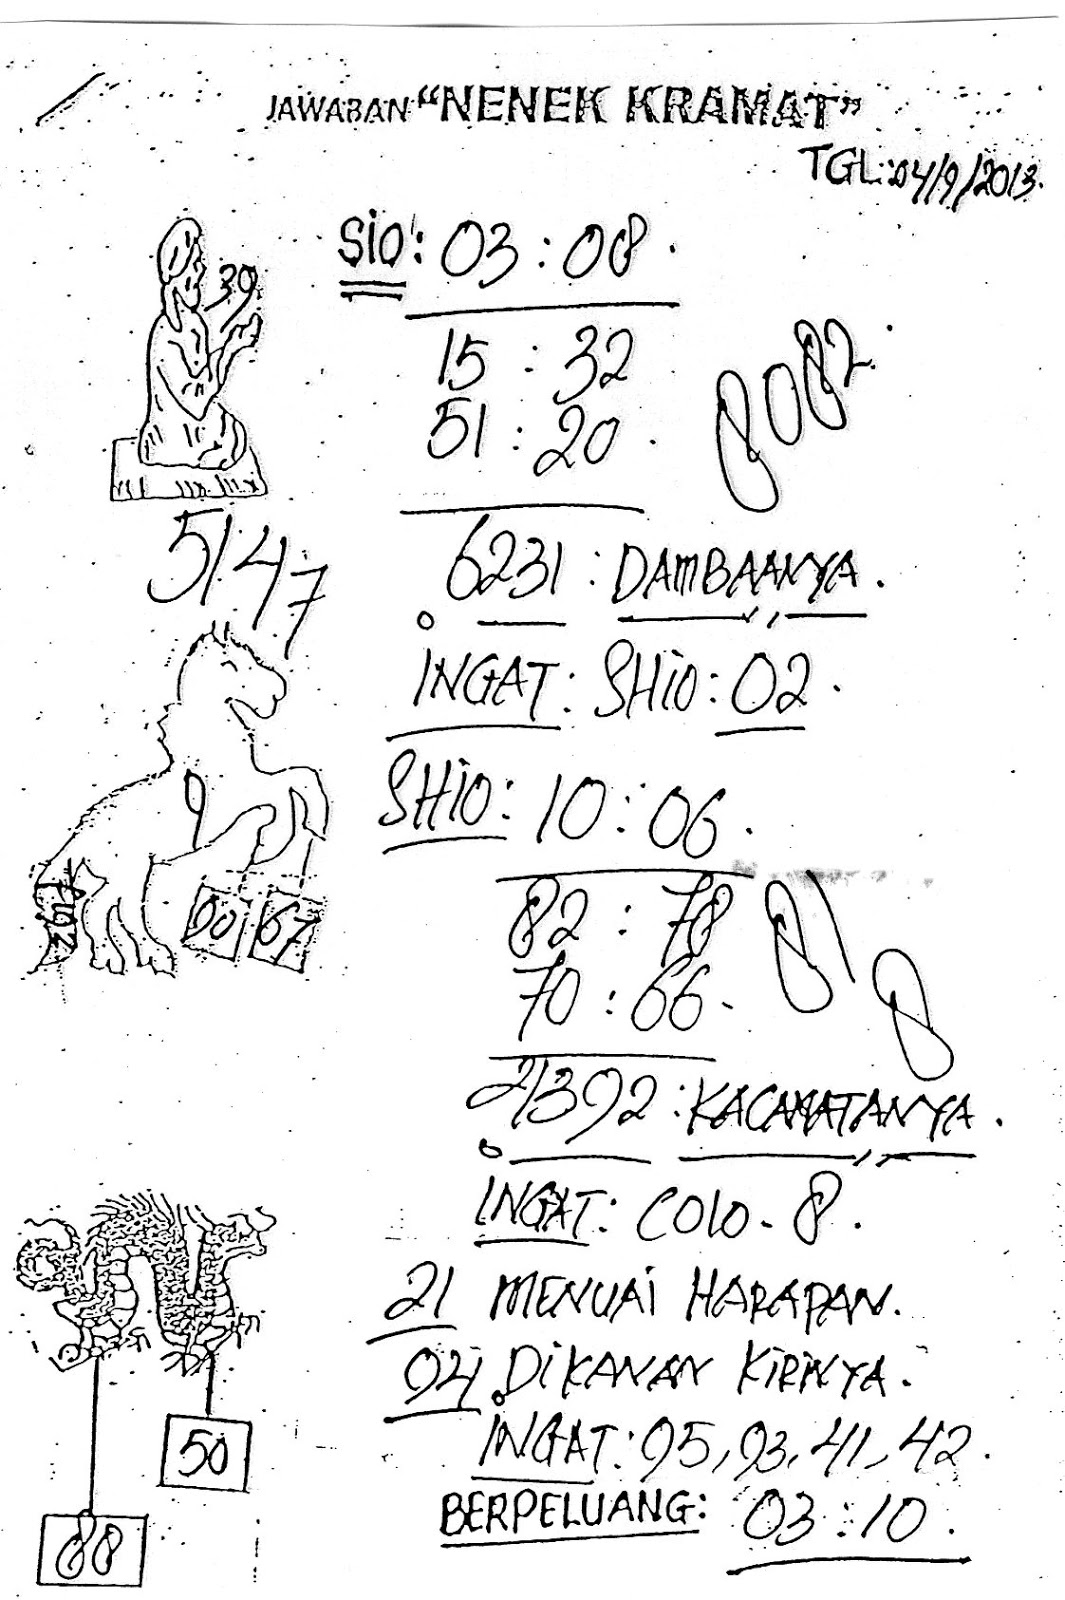 JAWABAN "NENEK KRAMAT"
TGL: 04/9/2013.
SIO: 03 : 08.
39
15 : 32
51 : 20.
8082
5147
6231 : DAMBAANYA.
INGAT: SHIO: 02.
SHIO: 10 : 06.
9
82 : 78
81
90 67
70 : 66.
8
21392 : KACAMATANYA.
INGAT: COLO - 8.
21 MENUAI HARAPAN.
94 DIKANAN KIRINYA.
50
INGAT: 95, 93, 41, 42.
BERPELUANG: 03 : 10.
88